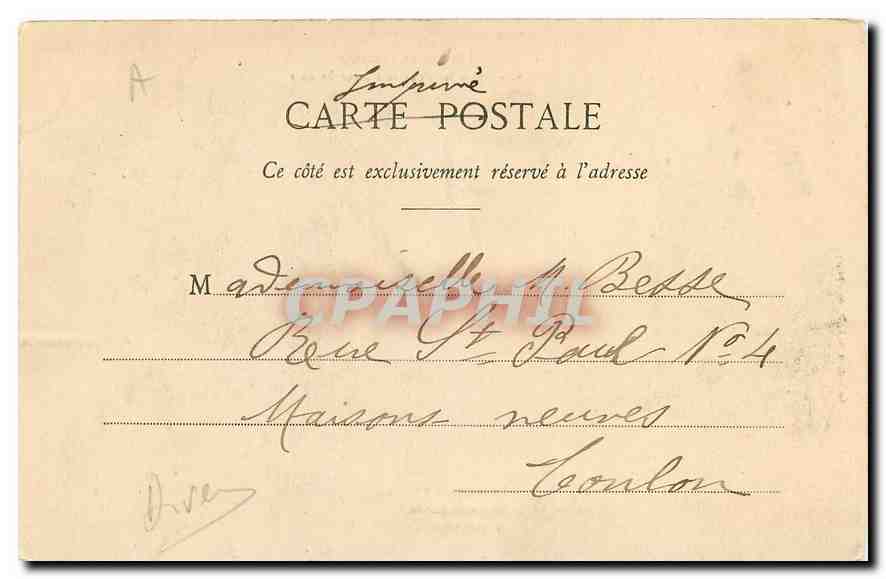 A
Imprimé
CARTE POSTALE
Ce côté est exclusivement réservé à l'adresse
Mademoiselle M. Besse
CPAPHIL
Rue St Paul No 4
Maisons neuves
Toulon
Divers